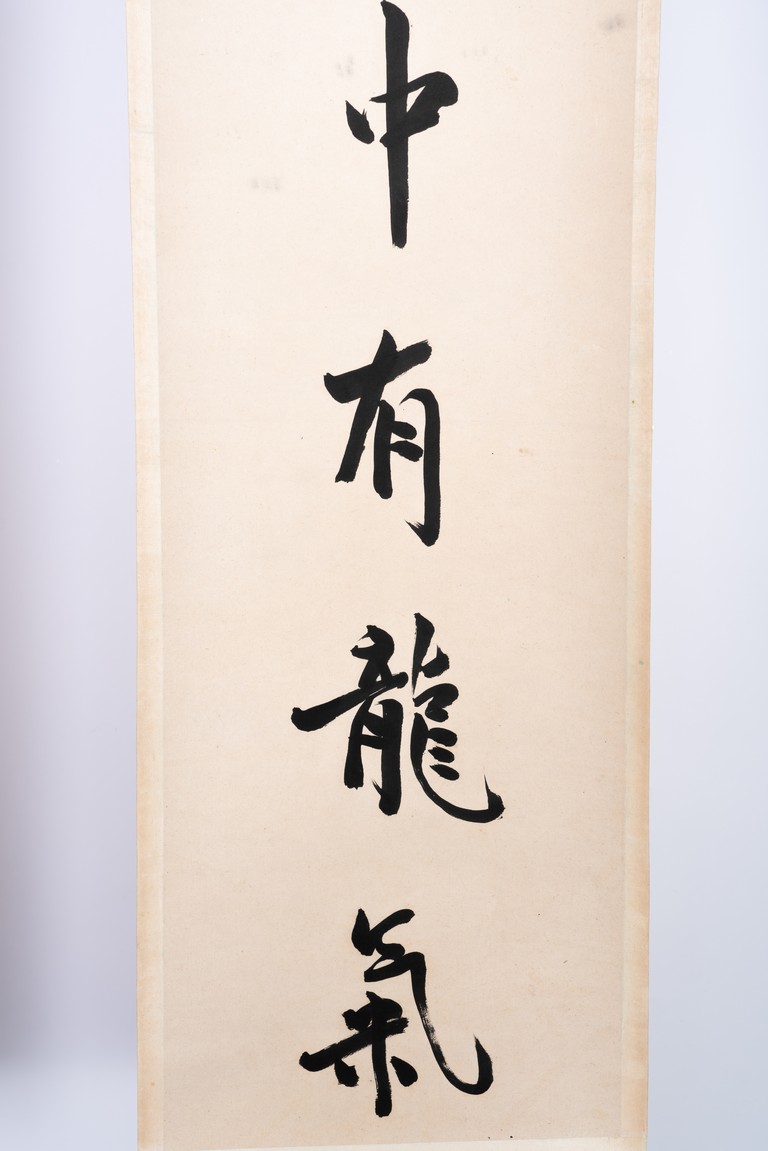 中有龍氣